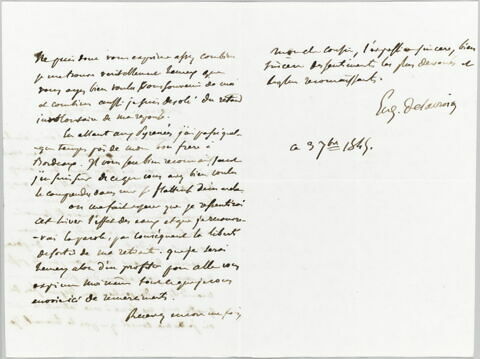 Ne puis donc vous exprimer assez combien
je me trouve véritablement heureux que
vous ayez bien voulu vous souvenir de moi
et combien aussi je suis désolé du retard
involontaire de ma réponse.
En allant aux Pyrénées j'ai passé quel
que temps près de mon frère à
Bordeaux. Il vous sera bien reconnaissant
j'en suis sûr de ce que vous avez bien voulu
le comprendre dans une si
on me fait espérer que je
cet hiver l'effet des eaux et que je recouvre-
-rai la parole, par conséquent la liberté
de sortir de ma retraite. que je serai
heureux alors d'en profiter pour aller vous
exprimer moi même tout ce que je vous
envoie ici de remerciements.
Recevez encore une fois,
mon cher cousin, l'expression sincère, bien
sincère des sentiments les plus dévoués et
les plus reconnaissants.
Eug. Delacroix
ce 3 7bre 1845.